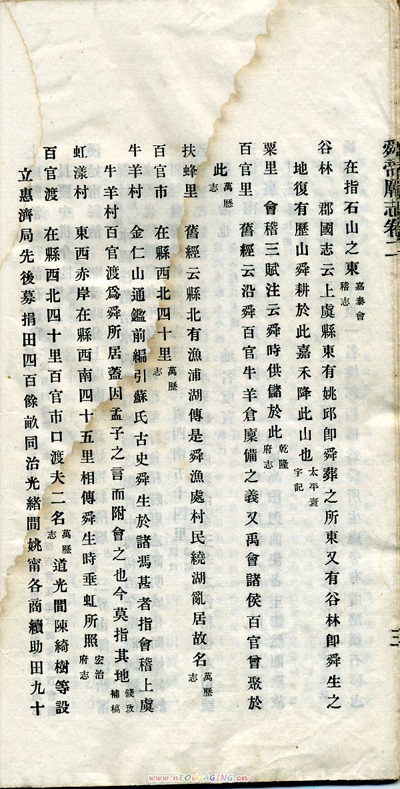 舜帝廟志卷二
在指石山之東 嘉泰會稽志
谷林　郡國志云上虞縣東有姚邱即舜葬之所東又有谷林即舜生之
地復有歷山舜耕於此嘉禾降此山也 太平寰宇記
粟里　會稽三賦注云舜時供儲於此 乾隆府志
百官里　舊經云沿舜百官牛羊倉廩備之義又禹會諸侯百官曾聚於
此 萬歷志
扶蜂里　舊經云縣北有漁浦湖傳是舜漁處村民繞湖亂居故名 萬歷志
百官市　在縣西北四十里 萬歷志
牛羊村　金仁山通鑑前編引蘇氏古史舜生於諸馮甚者指會稽上虞
牛羊村百官渡爲舜所居蓋因孟子之言而附會之也今莫指其地 備攷補稿
虹漾村　東西赤岸在縣西南四十五里相傳舜生時垂虹所照 宏治府志
百官渡　在縣西北四十里百官市口渡夫二名 萬歷志 道光間陳綺樹等設
立惠濟局先後募捐田四百餘畝同治光緒間姚甯各商續助田九十
三
www.nEOLYAGING.cn